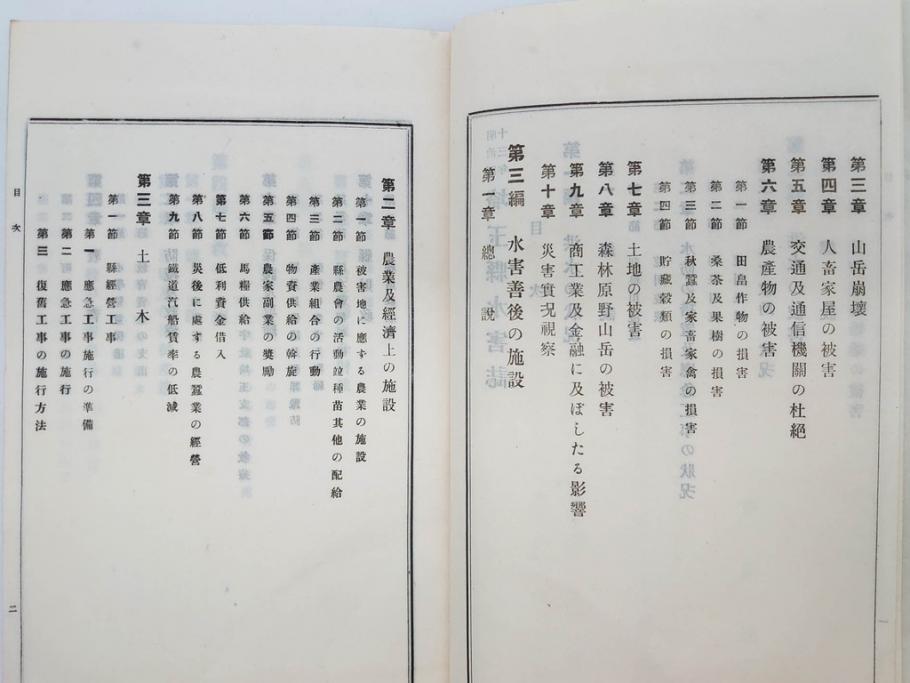 第三章 山岳崩壞
第四章 人畜家屋の被害
第五章 交通及通信機關の杜絶
第六章 農產物の被害
第一節 田畠作物の損害
第二節 桑茶及果樹の損害
第三節 秋蠶及家畜家禽の損害
第四節 貯藏穀類の損害
第七章 土地の被害
第八章 森林原野山岳の被害
第九章 商工業及金融に及ぼしたる影響
第十章 災害實況視察
第三編 水害善後の施設
第一章 總說
第二章 農業及經濟上の施設
第一節 被害地に應する農業の施設
第二節 縣農會の活動竝種苗其他の配給
第三節 產業組合の行動
第四節 物資供給の斡旋
第五節 農家副業の奬勵
第六節 馬糧供給
第七節 低利資金借入
第八節 災後に處する農蠶業の經營
第九節 鐵道汽船賃率の低減
第三章 土木
第一節 縣經營工事
第一 應急工事施行の準備
第二 應急工事の施行
第三 復舊工事の施行方法
目次
二